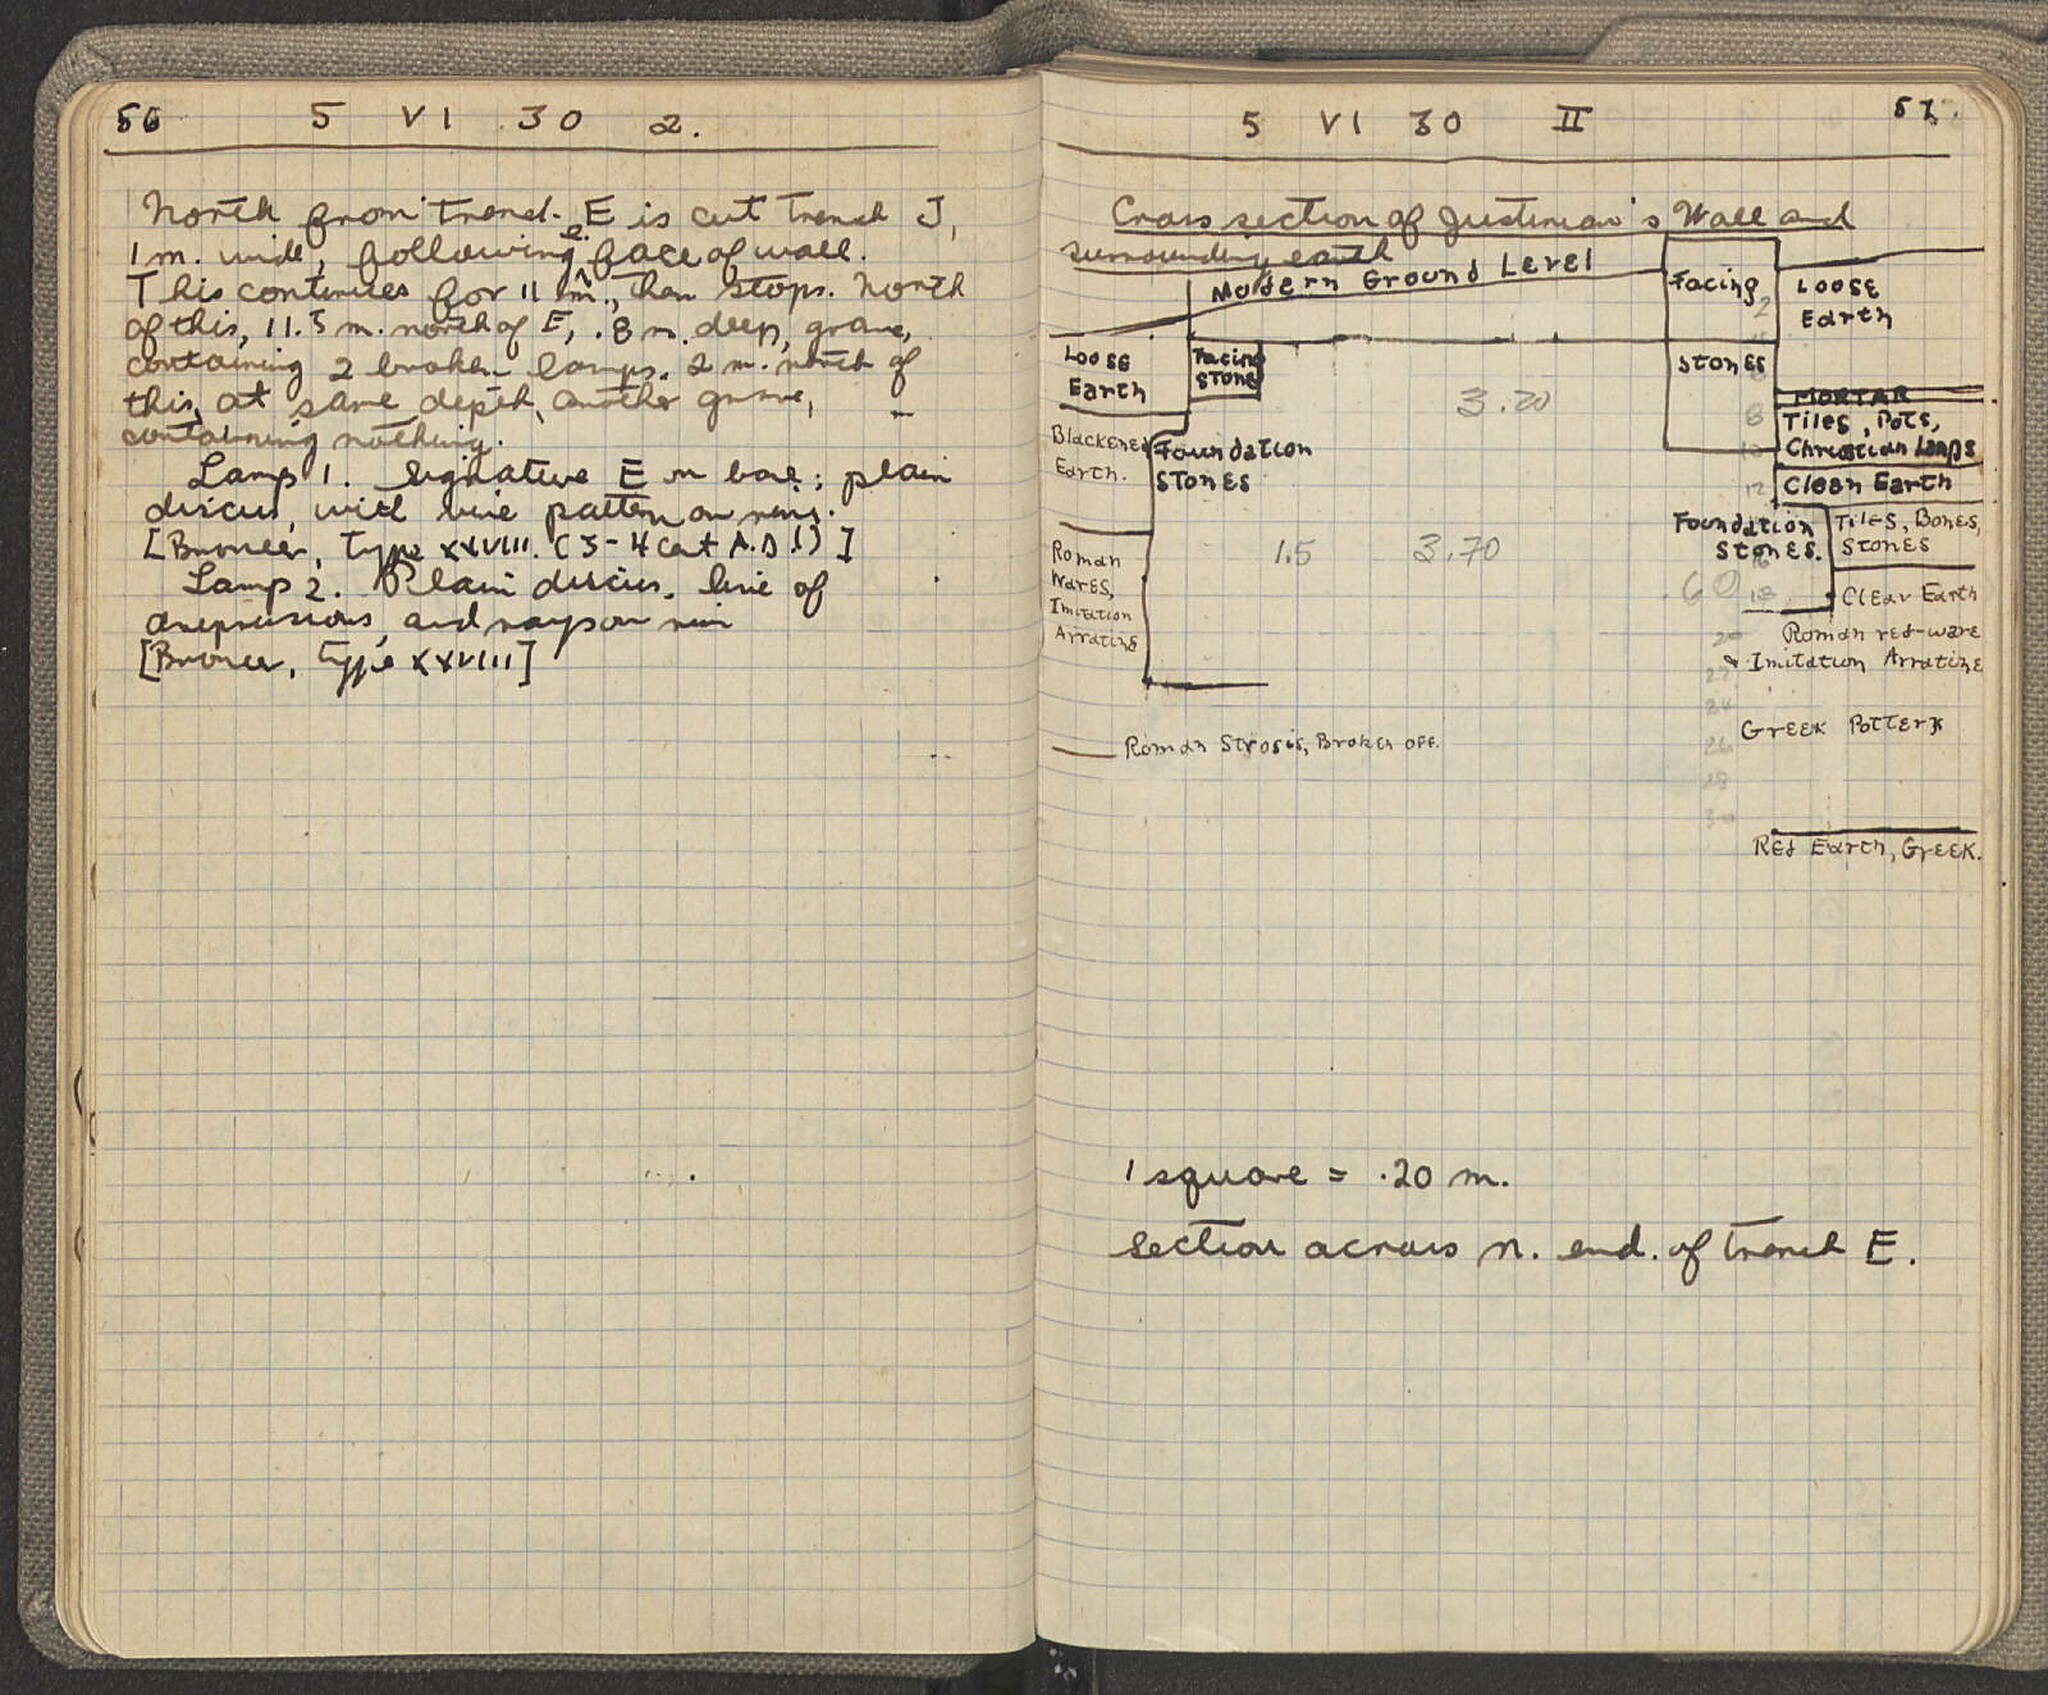 56 5 VI 30 2.
North from trench E is cut trench J,
1 m. wide, following e. face of wall.
This continues for 11 m., then stops. North
of this, 11.5 m. north of E, .8 m. deep, grave,
containing 2 broken lamps. 2 m. north of
this, at same depth, another grave,
containing nothing.
Lamp 1. Signature E on base; plain
discus, with vine pattern on rim.
[Broneer, Type XXVIII. (3-4 cent A.D.!)]
Lamp 2. Plain discus, line of
depressions, and rays on rim
[Broneer, Type XXVIII]
5 VI 30 II 57
Cross section of Justinian's Wall and
surrounding earth
Modern Ground Level
Facing
Stones
Loose
Earth
Loose
Earth
Facing
Stone
3.20
MORTAR
Tiles, Pots,
Christian Lamps
Clean Earth
Blackened
Earth.
Foundation
Stones
Foundation
Stones.
Tiles, Bones,
Stones
Roman
Wares,
Imitation
Arratine
1.5 3.70
.60
Clear Earth
Roman red-ware
& Imitation Arratine
Greek Pottery
Roman Strosis, Broken off.
Red Earth, Greek.
2
8
10
12
16
18
20
22
24
26
28
30
1 square = .20 m.
Section across n. end. of trench E.